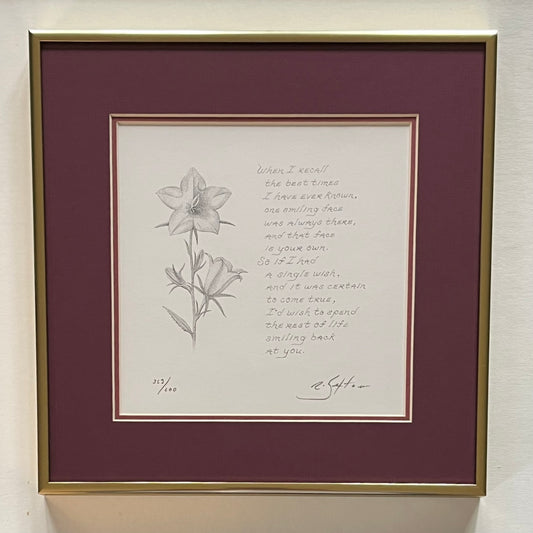 When I recall
the best times
I have ever known,
one smiling face
was always there,
and that face
is your own.
So if I had
a single wish,
and it was certain
to come true,
I'd wish to spend
the rest of life
smiling back
at you.
/600